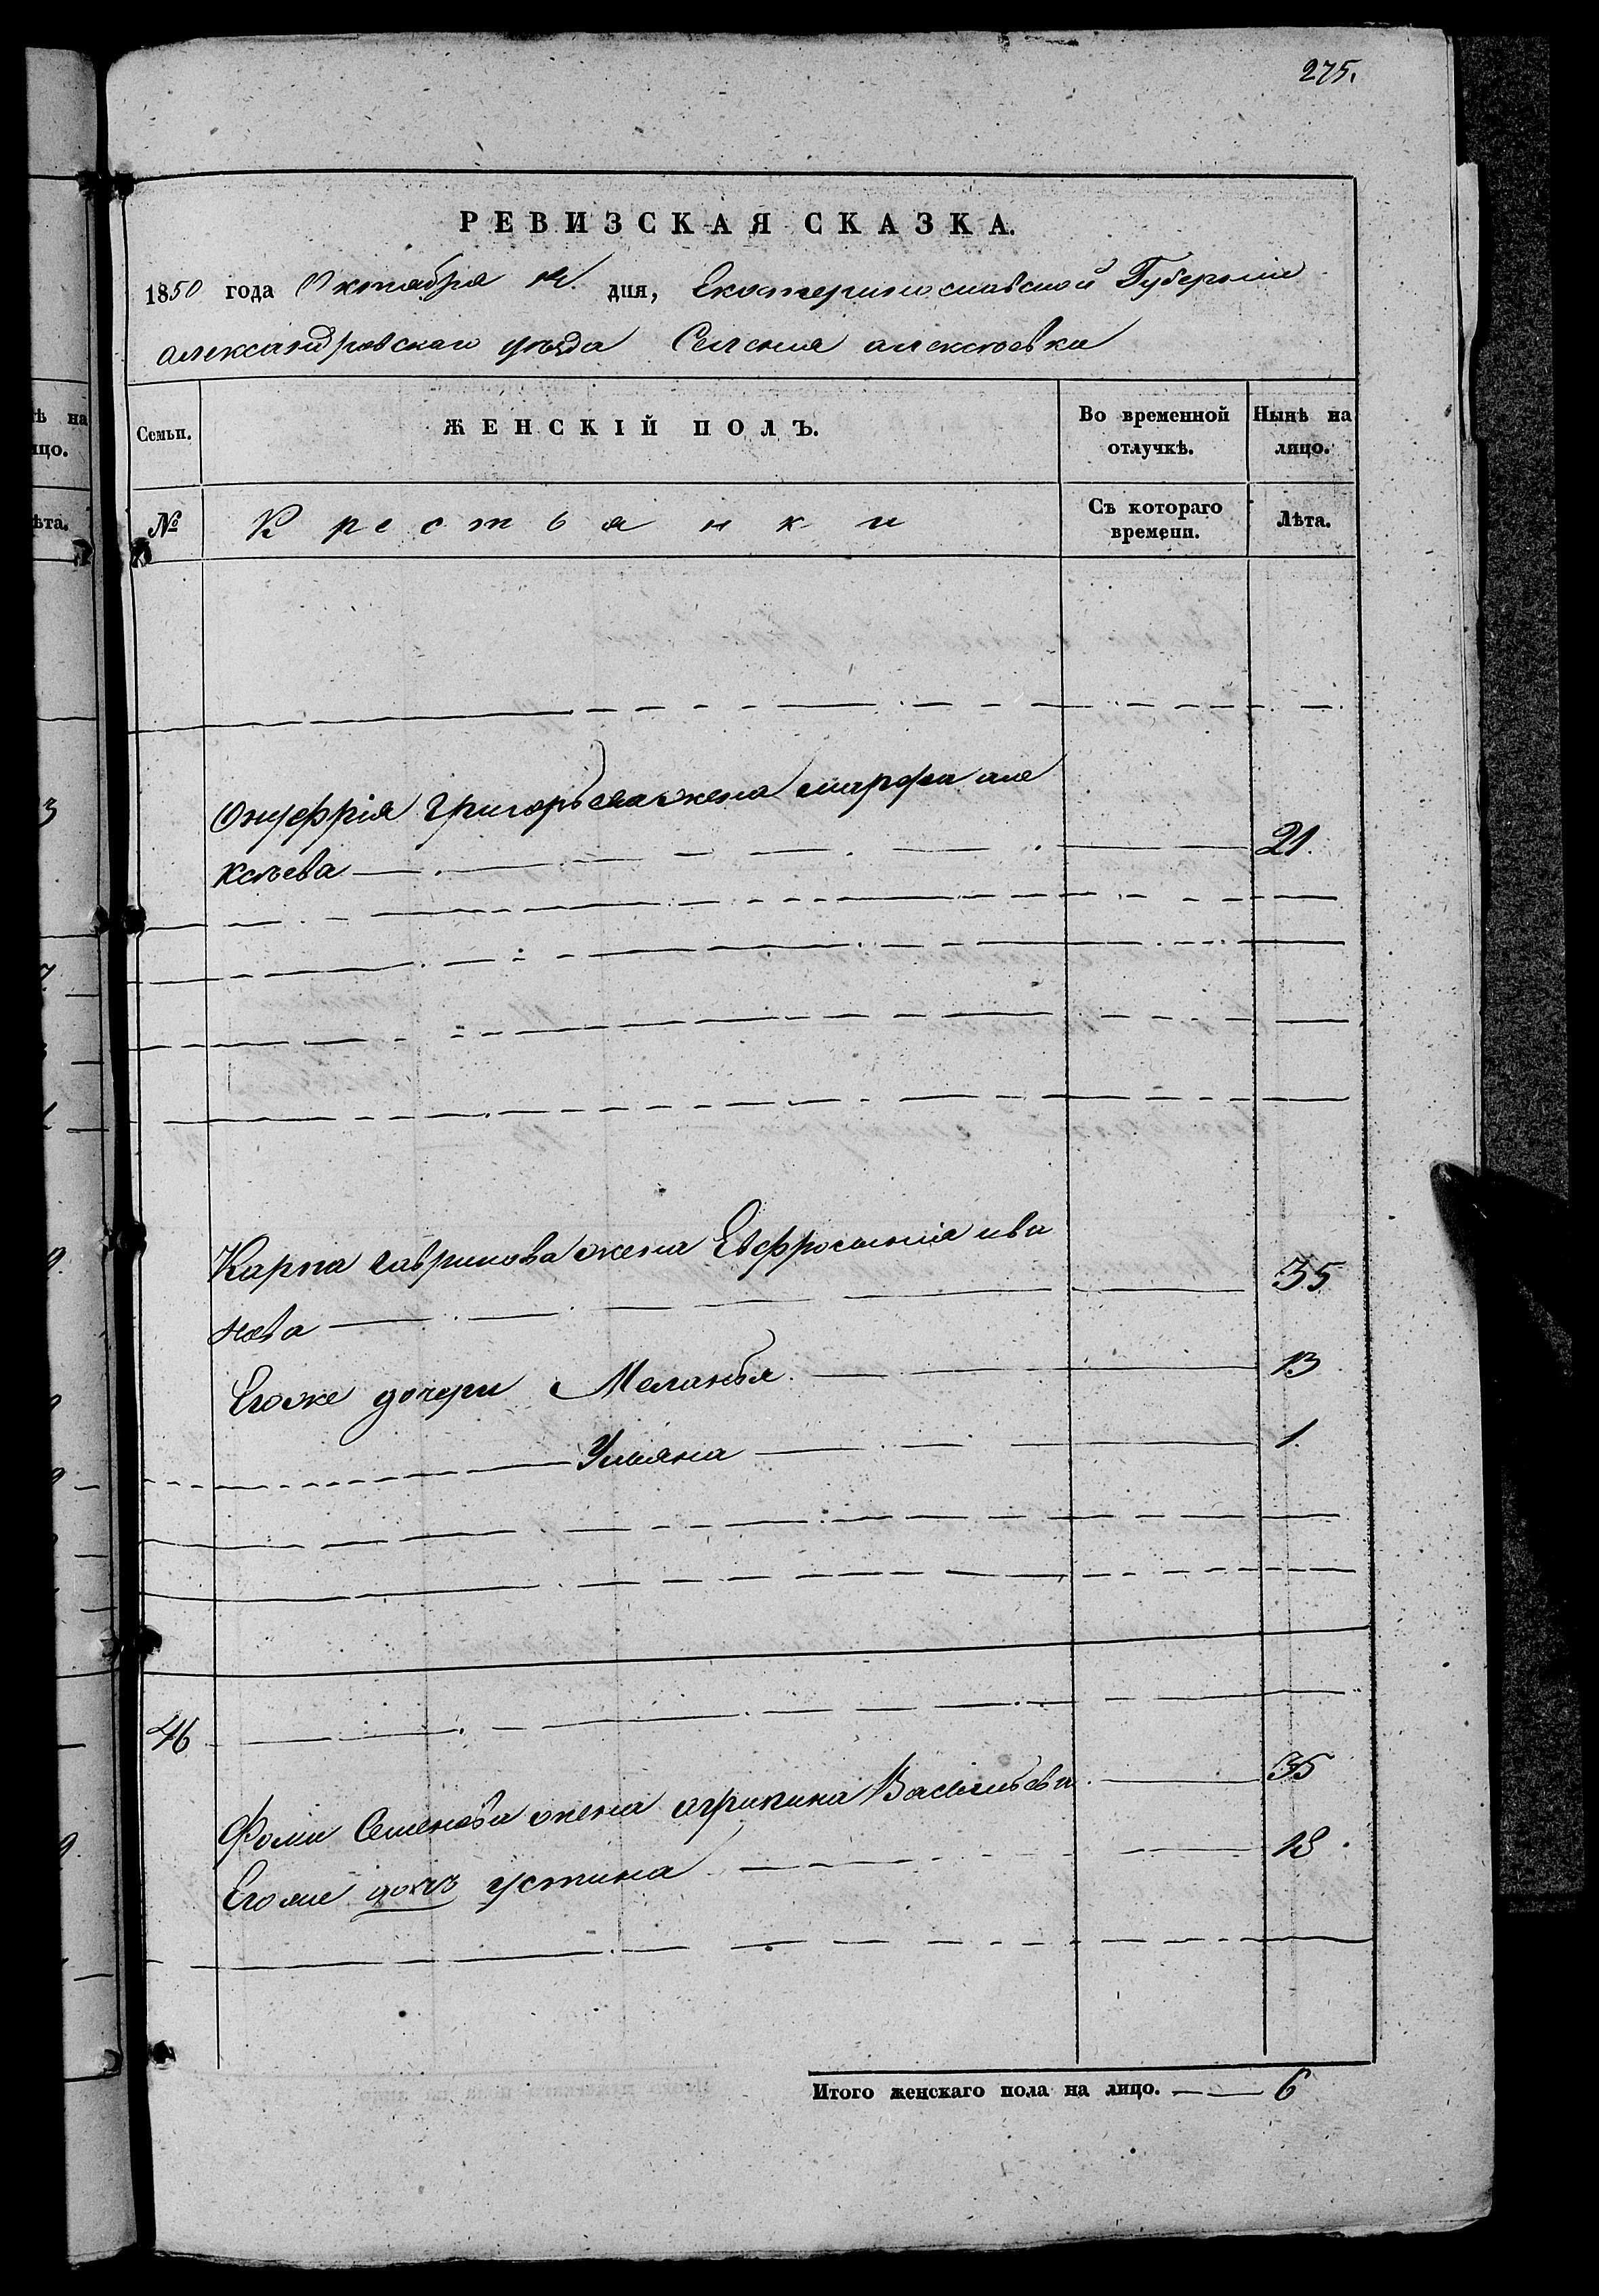 275.
РЕВИЗСКАЯ СКАЗКА.
1850 года Октября дня, Екатеринославской Губерніи
Александровскаго уѣзда Селенія алексѣевка
Семьи.
ЖЕНСКІЙ ПОЛЪ.
Во временной отлучкѣ.
Нынѣ на лицо.
№
Крестьянки
Съ котораго времени.
Лѣта.
Онуффрія Григорьева жена марфа але
ксѣева 21.
Карпа гаврилова жена Евфросинія ива
нова 35
Егоже дочери Меланья 13
Ульяна 1.
46
Фомы Семенова жена агрипина Васильева 35
Егоже дочь устина 18.
Итого женскаго пола на лицо. 6